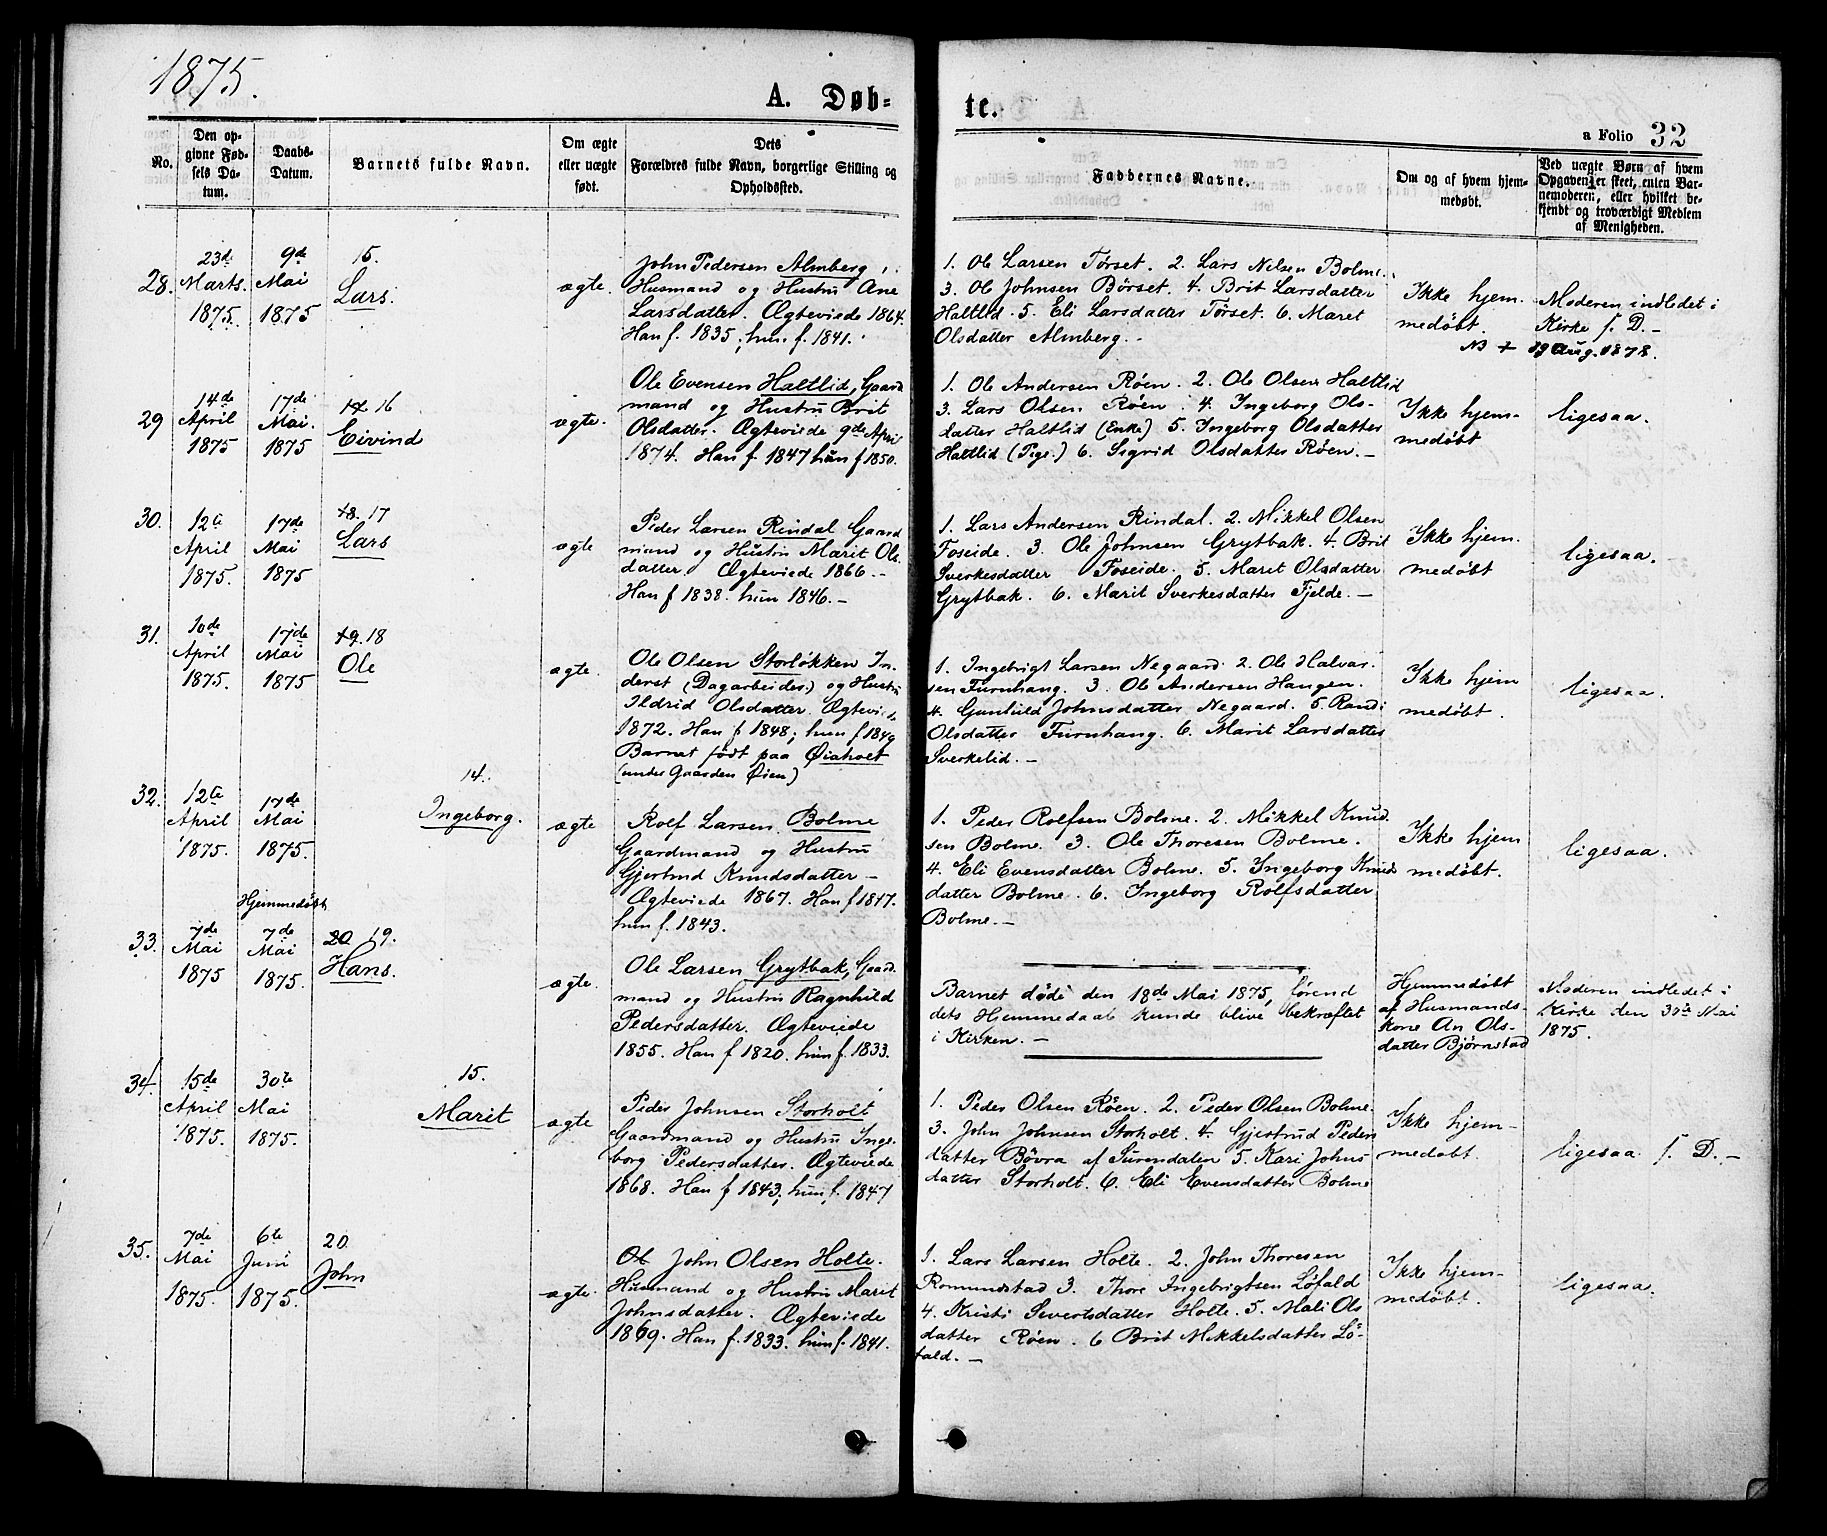 1875.
A. Døb=
te.
a Folio 32
No.
Den op-
givne Fød-
sels Da-
tum.
Daabs-
Datum.
Barnets fulde Navn.
Om ægte
eller uægte
født.
Dets
Forældres fulde Navn, borgerlige Stilling og
Opholdssted.
Faddernes Navne.
Om og af hvem hjem-
medøbt.
Ved uægte Børn af hvem
Opgaven er skeet, enten Bar-
nemoderen, eller hvilket be-
kjendt og troværdigt Medlem
af Menigheden.
28.
23de
Marts.
1875.
9de
Mai
1875
15.
Lars.
ægte.
John Pedersen Almberg,
Husmand og Hustru Ane
Larsdatter. Ægteviede 1864.
Han f. 1835, hun f. 1841.
1. Ole Larsen Tørset. 2. Lars Nilsen Bolme.
3. Ole Johnsen Børset. 4. Brit Larsdatter
Haltlid. 5. Eli Larsdatter Tørset. 6. Maret
Olsdatter Almberg.
Ikke hjem-
medøbt.
Moderen indledet i
Kirke s. D. -
NB + 19 Aug. 1878.
29
14de
April
1875
17de
Mai.
1875
17 16
Eivind
ægte.
Ole Evensen Haltlid, Gaard
mand og Hustru Brit
Olsdatter. Ægteviede 9de April
1874. Han f. 1847 hun f 1850.
1. Ole Andersen Røen. 2. Ole Olsen Haltlid
3. Lars Olsen Røen. 4. Ingeborg Ols-
datter Haltlid (Enke) 5. Ingeborg Olsdatter
Haltlid (Pige.) 6. Sigrid Olsdatter Røen. -
Ikke hjem-
medøbt
ligesaa.
30.
12te
April
1875.
17de
Mai
1875
18. 17
Lars
ægte
Peder Larsen Rindal Gaard
mand og Hustru Marit Ols
datter. Ægteviede 1866. -
Han f 1838. hun 1846. -
1. Lars Andersen Rindal. 2. Mikkel Olsen
Foseide. 3. Ole Johnsen Grytbak. 4. Brit
Sverkesdatter Foseide. 5. Maret Olsdatter
Grytbak. 6. Marit Sverkesdatter Fjelde. -
Ikke hjem.
medøbt
ligesaa.
31.
10de
April
1875.
17de
Mai
1875
19. 18
Ole
ægte.
Ole Olsen Storløkken In-
derst (Dagarbeider) og Hustru
Ildrid Olsdatter. Ægtevied.
1872. Han f 1848; hun f 1849
Barnet født paa Øiaholt
(under Gaarden Øien)
1. Ingebrigt Larsen Negaard. 2. Ole Halvar-
sen Furuhaug. 3. Ole Andersen Haugen.
4. Gunhild Johnsdatter Negaard. 5. Randi
Olsdatter Furuhaug. 6. Marit Larsdatter
Sverkelid. -
Ikke hjem
medøbt.
ligesaa.
32.
12te
April
1875.
17de
Mai
1875.
14.
Ingeborg.
ægte
Rolf Larsen Bolme
Gaardmand og Hustru
Gjertrud Knudsdatter -
Ægteviede 1867. Han f 1847.
hun f. 1843.
1. Peder Rolfsen Bolme. 2. Mikkel Knud-
sen Bolme. 3. Ole Thoresen Bolme.
4. Eli Evensdatter Bolme. 5. Ingeborg Knuds
datter Bolme. 6. Ingeborg Rolfsdatter
Bolme. -
Ikke hjem
medøbt.
ligesaa.
33.
7de
Mai
1875
Hjemmedøbt
7de
Mai
1875.
20 19.
Hans.
ægte.
Ole Larsen Grytbak, Gaard.
mand og Hustru Ragnhild
Pedersdatter. Ægteviede
1855. Han f 1820. hun f. 1833.
Barnet døde den 18de Mai 1875, førend
dets Hjemmedaab kunde blive bekræftet
i Kirken. -
Hjemmedøbt
af Husmands-
kone An Ols-
datter Bjørnstad
Moderen indledet i
Kirke den 30te Mai
1875.
34.
15de
April
1875.
30te
Mai
1875.
15.
Marit
ægte
Peder Johnsen Storholt
Gaardmand og Hustru Inge-
borg Pedersdatter. Ægteviede
1868. Han f 1843, hun f. 1847
1. Peder Olsen Røen. 2. Peder Olsen Bolme.
3. John Johnsen Storholt. 4. Gjertrud Peders
datter Bøvra af Surendalen 5. Kari Johns-
datter Storholt. 6. Eli Evensdatter Bolme
Ikke hjem-
medøbt.
ligesaa s. D. -
35.
7de
Mai
1875.
6te
Juni
1875.
20.
John
ægte.
Ol John Olsen Holte.
Husmand og Hustru Marit
Johnsdatter. Ægteviede
1869. Han f. 1833. hun f. 1841.
1. Lars Larsen Holte. 2. John Thoresen
Romundstad 3. Thore Ingebrigtsen Løfald
4. Kristi Sivertsdatter Holte. 5. Mali Ols
datter Røen. 6 Brit Mikkelsdatter Lø-
fald. -
Ikke hjem-
medøbt.
ligesaa.